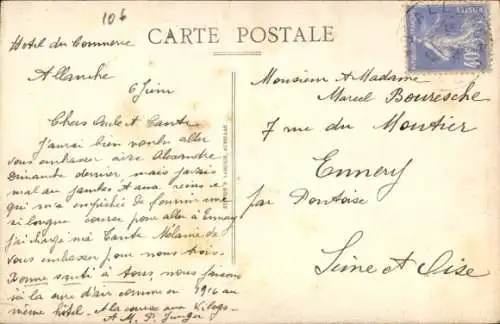 106
Hotel du Commerce
CARTE POSTALE
Allanche
6 Juin
Chers Oncle et Tante
J'aurai bien voulu aller
vous embrasser avec Alexandre
Dimanche dernier, mais j'avais
mal au jambes et aux reins ce
qui m'a empêchée de fournir une
si longue course pour aller à Ennery
j'ai chargé ma Tante Mélanie de
vous embrasser pour nous trois.
Bonne santé à tous, nous faisons
ici la cure d'air comme en 1916 au
même hôtel. A la course aux
A. M. P.
Monsieur et Madame
Marcel Bouresche
7 rue du Moutier
Ennery
par Pontoise
Seine et Oise
40c